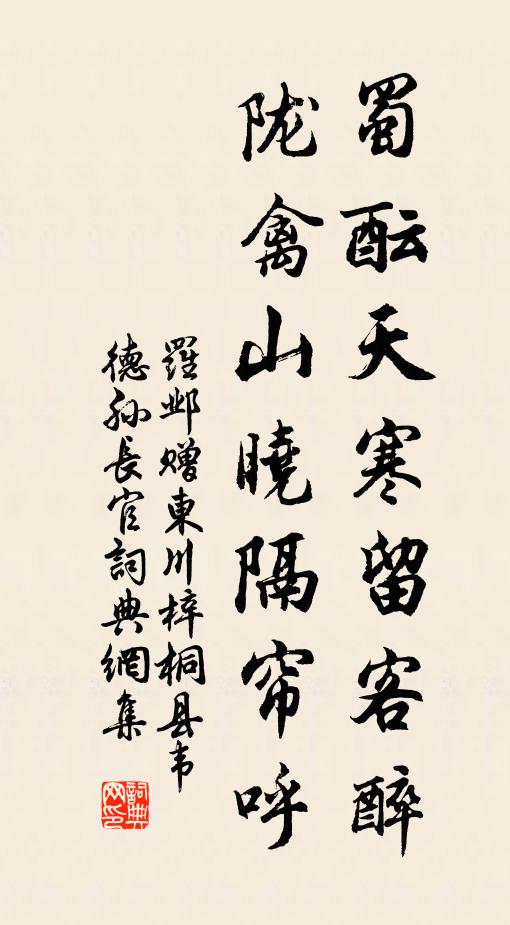 蜀酝天寒留客醉
陇禽山晓隔帘呼
羅邺赠東川梓桐县韦
德孙長官詞典網集
詞典网印